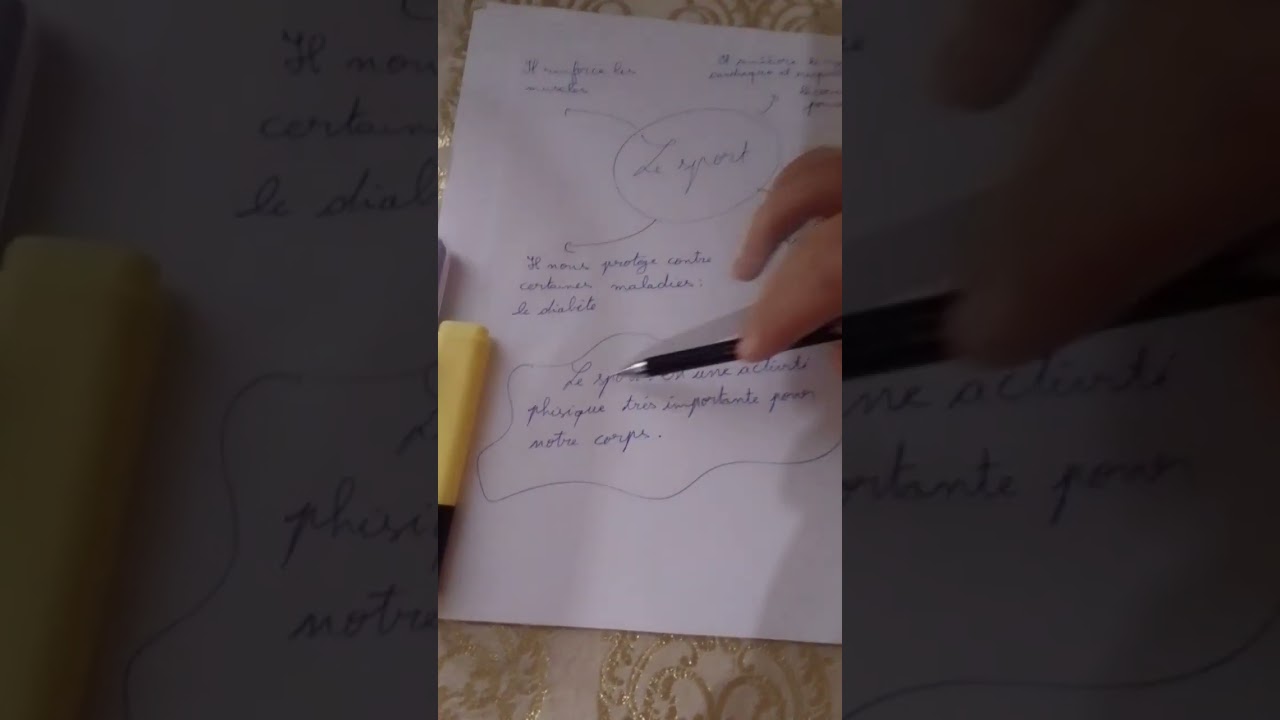 Il renforce les
muscles
cardiaque et
Le sport
Il nous protège contre
certaines maladies :
le diabète
Le sport est une activité
phisique très importante pour
notre corps.